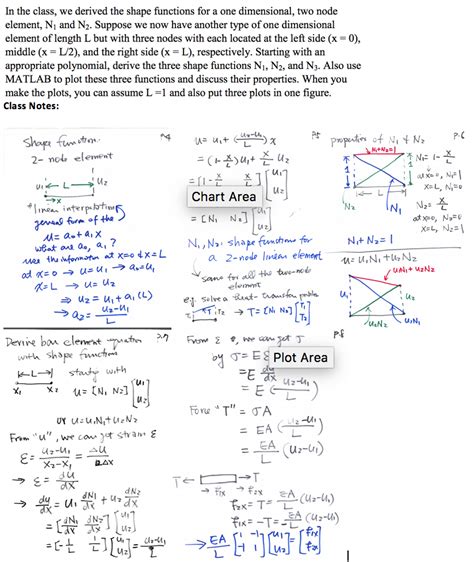 In the class, we derived the shape functions for a one dimensional, two node
element, N₁ and N₂. Suppose we now have another type of one dimensional
element of length L but with three nodes with each located at the left side (x = 0),
middle (x = L/2), and the right side (x = L), respectively. Starting with an
appropriate polynomial, derive the three shape functions N₁, N₂, and N₃. Also use
MATLAB to plot these three functions and discuss their properties. When you
make the plots, you can assume L =1 and also put three plots in one figure.
Class Notes:
shape function
2- node element
u₁ ← L → u₂
→x
linear interpolation
general form of the
u = a₀ + a₁ x
what are a₀, a₁ ?
use the information at x=0 & x=L
at x=0 → u=u₁ → a₀=u₁
x=L → u=u₂
⇒ u₂ = u₁ + a₁ (L)
u = u₁ + (u₂-u₁)/L x
= (1 - x/L) u₁ + x/L u₂
Chart Area
= [N₁ N₂]
N₁, N₂: shape functions for
a 2-node linear element
same for all the two-node
element
e.g. solve a heat transfer problem
→ T= [N₁ N₂] [T₁ T₂]
properties of N₁ & N₂
P.6
N₁+N₂=1
N₁= 1- x/L
at x=0, N₁=1
x=L, N₁=0
N₂= x/L
at x=0, N₂=0
x=L, N₂=1
← L →
N₂
N₁
N₁+N₂=1
u= u₁N₁+u₂N₂
u₁N₁+u₂N₂
u₁
u₂
u₂N₂
u₁N₁
Derive bar element equation
P.7
with shape function
← L →
starting with
x₁ x₂ u= [N₁ N₂] [u₁ u₂]
or u=u₁N₁+u₂N₂
From "u", we can get strain ε
ε = (u₂-u₁)/(x₂-x₁) = Δu/Δx
→ ε = du/dx
→ du/dx = u₁ dN₁/dx + u₂ dN₂/dx
= [dN₁/dx dN₂/dx] [u₁ u₂]
= [-1/L 1/L] [u₁ u₂] = (u₂-u₁)/L
P.8
From ε, we can get σ
by σ= Eε
Plot Area
= E du/dx
= E (u₂-u₁)/L
Force "T" = σA
= EA (u₂-u₁)/L
= EA/L (u₂-u₁)
T← →T
→ f₁ₓ → f₂ₓ
f₂ₓ = T = EA/L (u₂-u₁)
f₁ₓ = -T = -EA/L (u₂-u₁)
→ EA/L [1 -1 -1 1] [u₁ u₂] = [f₁ₓ f₂ₓ]